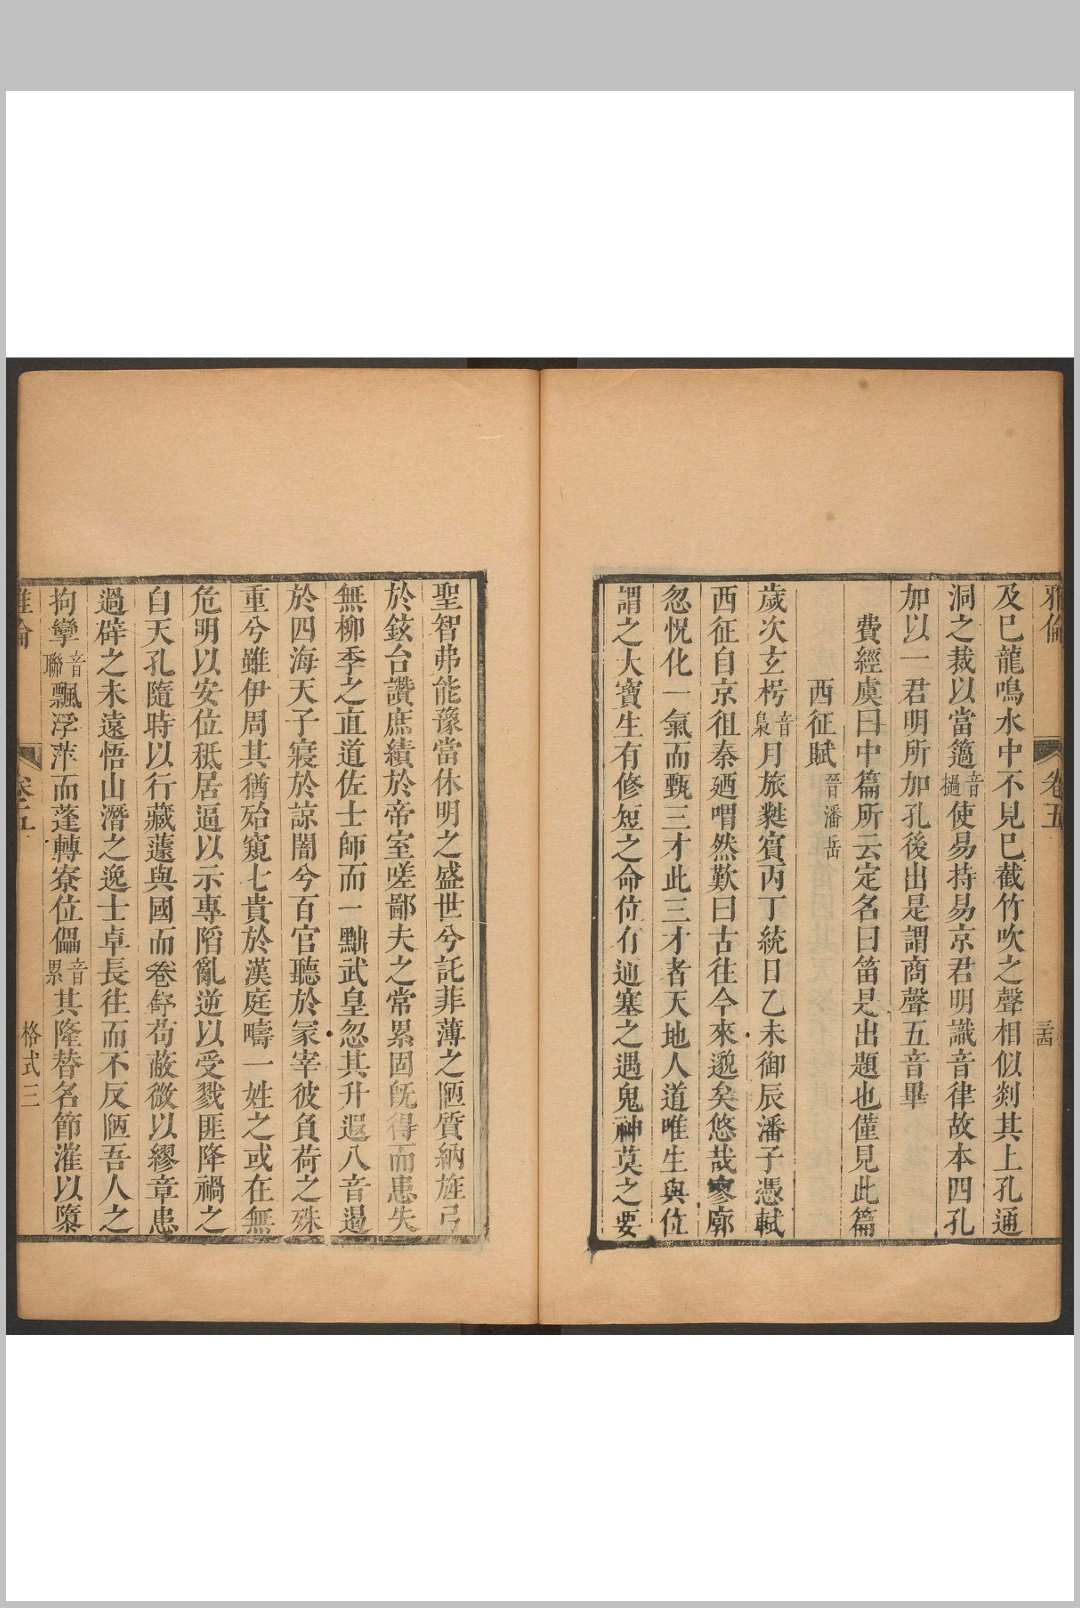 雅倫 卷五
及巳龍鳴水中不見巳截竹吹之聲相似剡其上孔通
洞之裁以當簻音撾使易持易京君明識音律故本四孔
加以一君明所加孔後出是謂商聲五音畢
費經虞曰中篇所云定名曰笛是出題也僅見此篇
西征賦 晉潘岳
歲次玄枵音梟月旅蕤賓丙丁統日乙未御辰潘子憑軾
西征自京徂秦廼喟然歎曰古往今來邈矣悠哉寥廓
忽怳化一氣而甄三才此三才者天地人道唯生與位
謂之大寶生有修短之命位有通塞之遇鬼神莫之要
聖智弗能豫當休明之盛世兮託菲薄之陋質納旌弓
於鉉台讚庶績於帝室嗟鄙夫之常累固旣得而患失
無柳季之直道佐士師而一黜武皇忽其升遐八音遏
於四海天子寢於諒闇兮百官聽於冢宰彼負荷之殊
重兮雖伊周其猶殆窺七貴於漢庭疇一姓之或在無
危明以安位秪居逼以示專陷亂逆以受戮匪降禍之
自天孔隨時以行藏蘧與國而卷舒苟蔽微以繆章患
過辟之未遠悟山潛之逸士卓長往而不反陋吾人之
拘攣音聯飄浮萍而蓬轉寮位儡音累其隆替名節漼以隳
雅倫 卷五 格式三